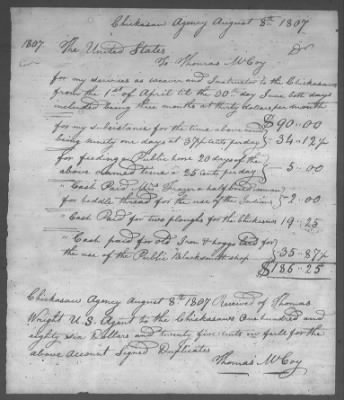 Chickasaw Agency August 8th 1807
1807. The United States
To Thomas McCoy Dr
for my services as weaver and Instructor to the Chickasaws
from the 1st of April til the 30th day June both days
included being three months at thirty dollars per month
$90..00
for my subsistance for the time above and
being ninety one days at 37½ cents per day } 34..12½
for feeding a Public horse 20 days of the
above named time a 25 cents per day } 5..00
" Cash Paid Mrs a half breed woman
for heddle thread for the use of the Indians } 2..00
" Cash Paid for two ploughs for the Chickasaws 19..25
" Cash paid for old Iron & hoggs lard for
the use of the Public Blacksmith shop } 35..87½
$186..25
Chickasaw Agency August 8th 1807 Received of Thomas
Wright U.S. Agent to the Chickasaws One hundred and
eighty six Dollars and twenty five cents in full for the
above Account Signed Duplicates
Thomas McCoy